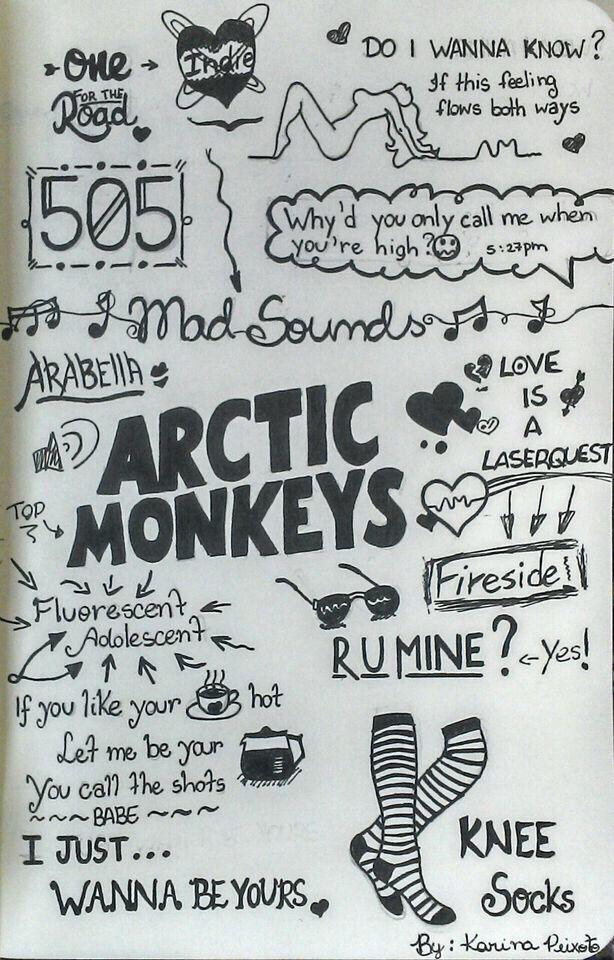 One
FOR THE
Road
Indie
DO I WANNA KNOW?
If this feeling
flows both ways
505
Why'd you only call me when
you're high?
5:27pm
Mad Sounds
ARABELLA
LOVE
IS
A
LASERQUEST
ARCTIC
MONKEYS
TOP
3
Fireside!
Fluorescent
Adolescent
R U MINE?
Yes!
If you like your hot
Let me be your
You call the shots
~~~ BABE ~~~
I JUST...
WANNA BE YOURS
KNEE
Socks
By: Karina Peixoto